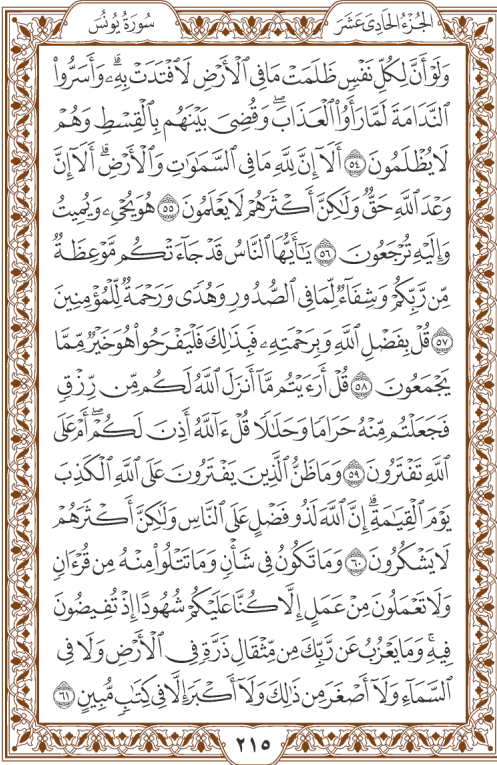 الجُزْءُ الحَادِى عَشَرَ
سُورَةُ يُونُسَ
وَلَوْ أَنَّ لِكُلِّ نَفْسٍ ظَلَمَتْ مَا فِي ٱلْأَرْضِ لَٱفْتَدَتْ بِهِۦۗ وَأَسَرُّوا۟
ٱلنَّدَامَةَ لَمَّا رَأَوُا۟ ٱلْعَذَابَۖ وَقُضِيَ بَيْنَهُم بِٱلْقِسْطِ وَهُمْ
لَا يُظْلَمُونَ ٥٤ أَلَآ إِنَّ لِلَّهِ مَا فِي ٱلسَّمَـٰوَٰتِ وَٱلْأَرْضِۗ أَلَآ إِنَّ
وَعْدَ ٱللَّهِ حَقٌّ وَلَـٰكِنَّ أَكْثَرَهُمْ لَا يَعْلَمُونَ ٥٥ هُوَ يُحْيِۦ وَيُمِيتُ
وَإِلَيْهِ تُرْجَعُونَ ٥٦ يَـٰٓأَيُّهَا ٱلنَّاسُ قَدْ جَآءَتْكُم مَّوْعِظَةٌ
مِّن رَّبِّكُمْ وَشِفَآءٌ لِّمَا فِي ٱلصُّدُورِ وَهُدًى وَرَحْمَةٌ لِّلْمُؤْمِنِينَ
٥٧ قُلْ بِفَضْلِ ٱللَّهِ وَبِرَحْمَتِهِۦ فَبِذَٰلِكَ فَلْيَفْرَحُوا۟ هُوَ خَيْرٌ مِّمَّا
يَجْمَعُونَ ٥٨ قُلْ أَرَءَيْتُم مَّآ أَنزَلَ ٱللَّهُ لَكُم مِّن رِّزْقٍ
فَجَعَلْتُم مِّنْهُ حَرَامًا وَحَلَـٰلًا قُلْ ءَآللَّهُ أَذِنَ لَكُمْۖ أَمْ عَلَى
ٱللَّهِ تَفْتَرُونَ ٥٩ وَمَا ظَنُّ ٱلَّذِينَ يَفْتَرُونَ عَلَى ٱللَّهِ ٱلْكَذِبَ
يَوْمَ ٱلْقِيَـٰمَةِۗ إِنَّ ٱللَّهَ لَذُو فَضْلٍ عَلَى ٱلنَّاسِ وَلَـٰكِنَّ أَكْثَرَهُمْ
لَا يَشْكُرُونَ ٦٠ وَمَا تَكُونُ فِي شَأْنٍ وَمَا تَتْلُوا۟ مِنْهُ مِن قُرْءَانٍ
وَلَا تَعْمَلُونَ مِنْ عَمَلٍ إِلَّا كُنَّا عَلَيْكُمْ شُهُودًا إِذْ تُفِيضُونَ
فِيهِۚ وَمَا يَعْزُبُ عَن رَّبِّكَ مِن مِّثْقَالِ ذَرَّةٍ فِي ٱلْأَرْضِ وَلَا فِي
ٱلسَّمَآءِ وَلَآ أَصْغَرَ مِن ذَٰلِكَ وَلَآ أَكْبَرَ إِلَّا فِي كِتَـٰبٍ مُّبِينٍ ٦١
٢١٥